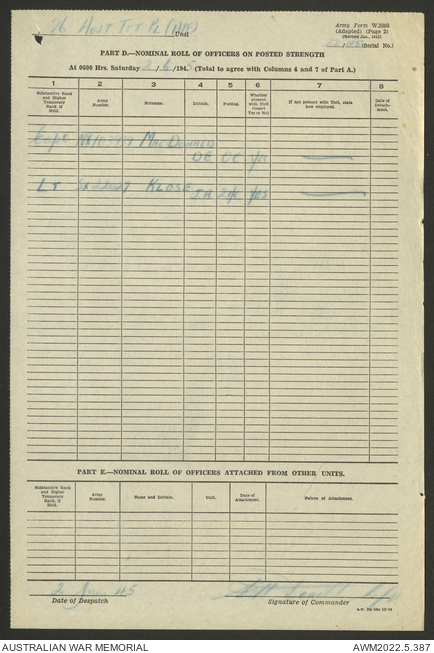 26 Aust Tpt Pl (AIF) Unit
Army Form W.3008
(Adapted) (Page 2)
(Revised Jan., 1942)
(Serial No.)
PART D.—NOMINAL ROLL OF OFFICERS ON POSTED STRENGTH
At 0600 Hrs. Saturday 2/6/1945 (Total to agree with Columns 4 and 7 of Part A.)
1 2 3 4 5 6 7 8
Substantive Rank and Higher Temporary Rank if Held.
Army Number.
Surname.
Initials.
Posting.
Whether present with Unit (insert Yes or No)
If not present with Unit, state how employed.
Date of Detachment.
Capt MacDonald
OC Yes
Lt Klose
J.A. 2i/c Yes
PART E.—NOMINAL ROLL OF OFFICERS ATTACHED FROM OTHER UNITS.
Substantive Rank and Higher Temporary Rank, if Held.
Army Number.
Name and Initials.
Unit.
Date of Attachment.
Nature of Attachment.
2 Jun 45
Date of Despatch
Signature of Commander
AUSTRALIAN WAR MEMORIAL
AWM2022.5.387